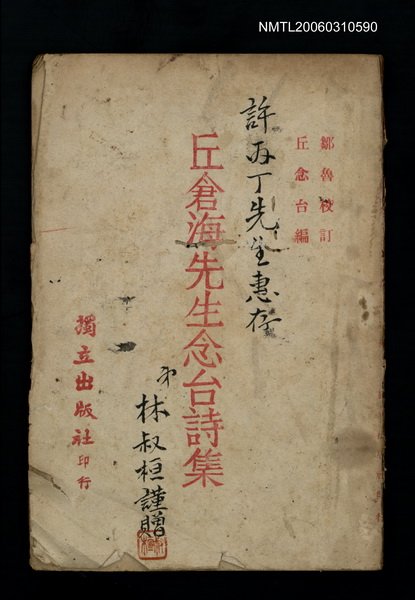 NMTL20060310590
鄒魯校訂
丘念台編
許丙丁先生惠存
丘倉海先生念台詩集
弟 林叔桓謹贈
獨立出版社印行